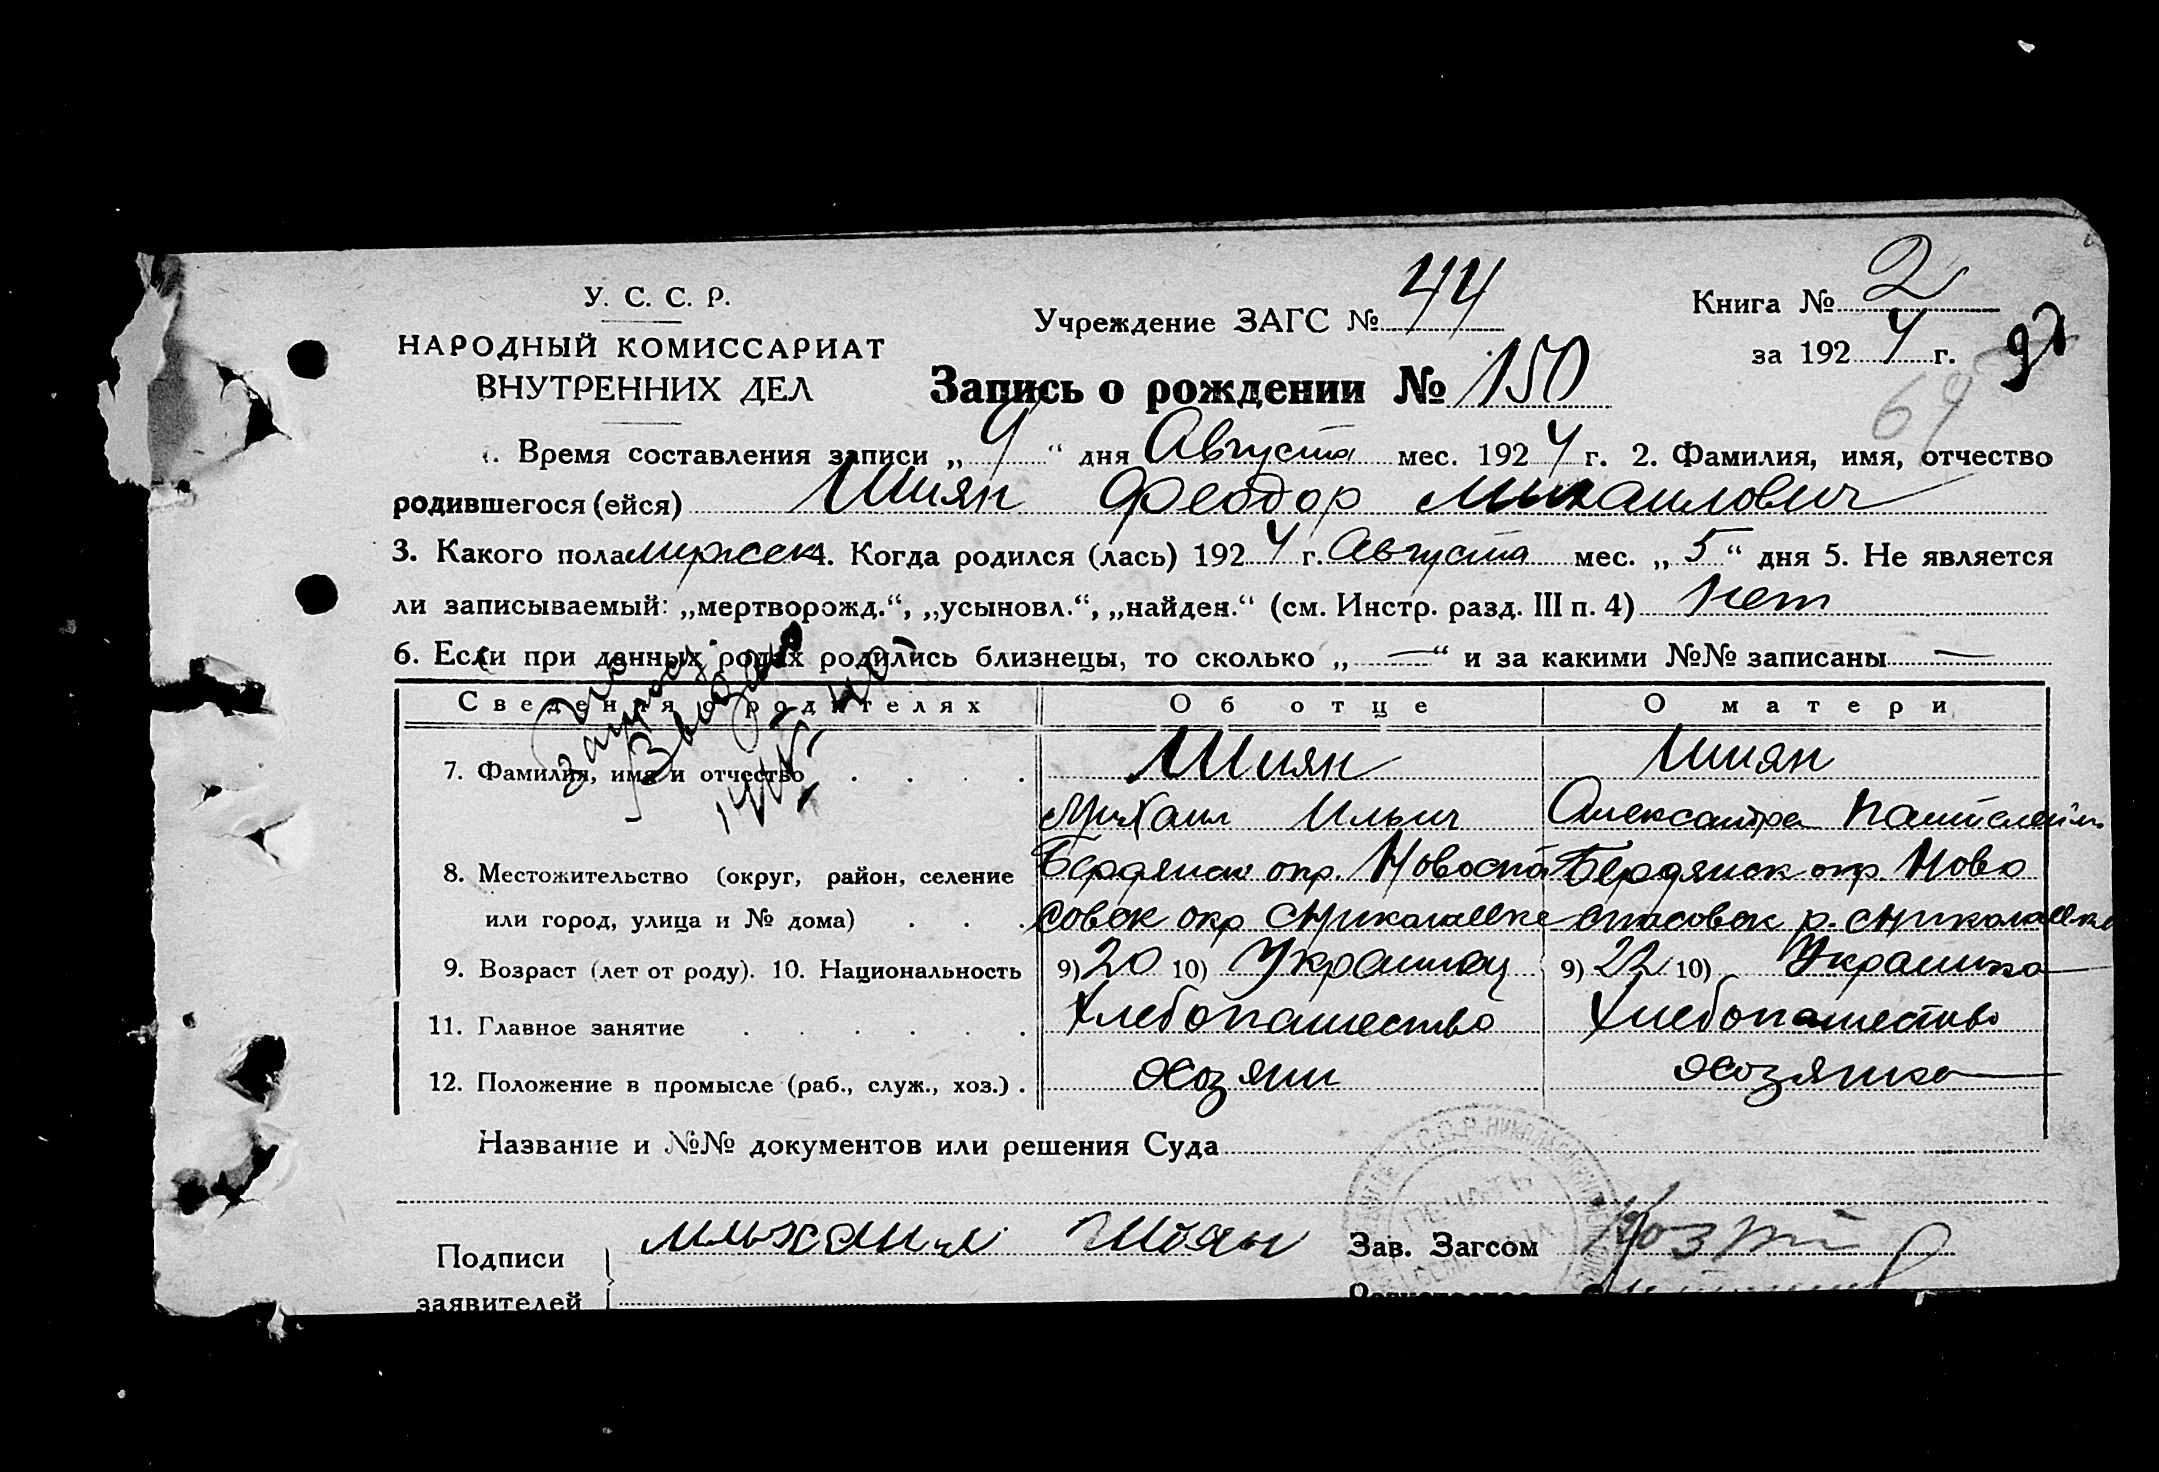 У. С. С. Р.
НАРОДНЫЙ КОМИССАРИАТ
ВНУТРЕННИХ ДЕЛ
Учреждение ЗАГС № 44
Книга № 2
за 1924 г.
64
Запись о рождении № 150
1. Время составления записи „9“ дня Августа мес. 1924 г. 2. Фамилия, имя, отчество
родившегося (ейся) Шиян Феодор Михаилович
3. Какого пола мужск 4. Когда родился (лась) 1924 г. Августа мес. „5“ дня 5. Не является
ли записываемый: „мертворожд.“, „усыновл.“, „найден.“ (см. Инстр. разд. III п. 4) нет
6. Если при данных родах родились близнецы, то сколько „—“ и за какими №№ записаны —
Сведения о родителях Об отце О матери
7. Фамилия, имя и отчество . . . . Шиян Шиян
Михаил Ильич Александра
8. Местожительство (округ, район, селение Бердянск окр. Новоспа Бердянск окр. Ново
или город, улица и № дома) . . . совск окр Николаевке спасовск р. с Николаевке
9. Возраст (лет от роду). 10. Национальность 9) 20 10) Украинец 9) 22 10) Украинка
11. Главное занятие . . . . . . Хлебопашество Хлебопашество
12. Положение в промысле (раб., служ., хоз.) . хозяин хозяйка
Название и №№ документов или решения Суда
Подписи
заявителей
Михаил Шиян
Зав. Загсом